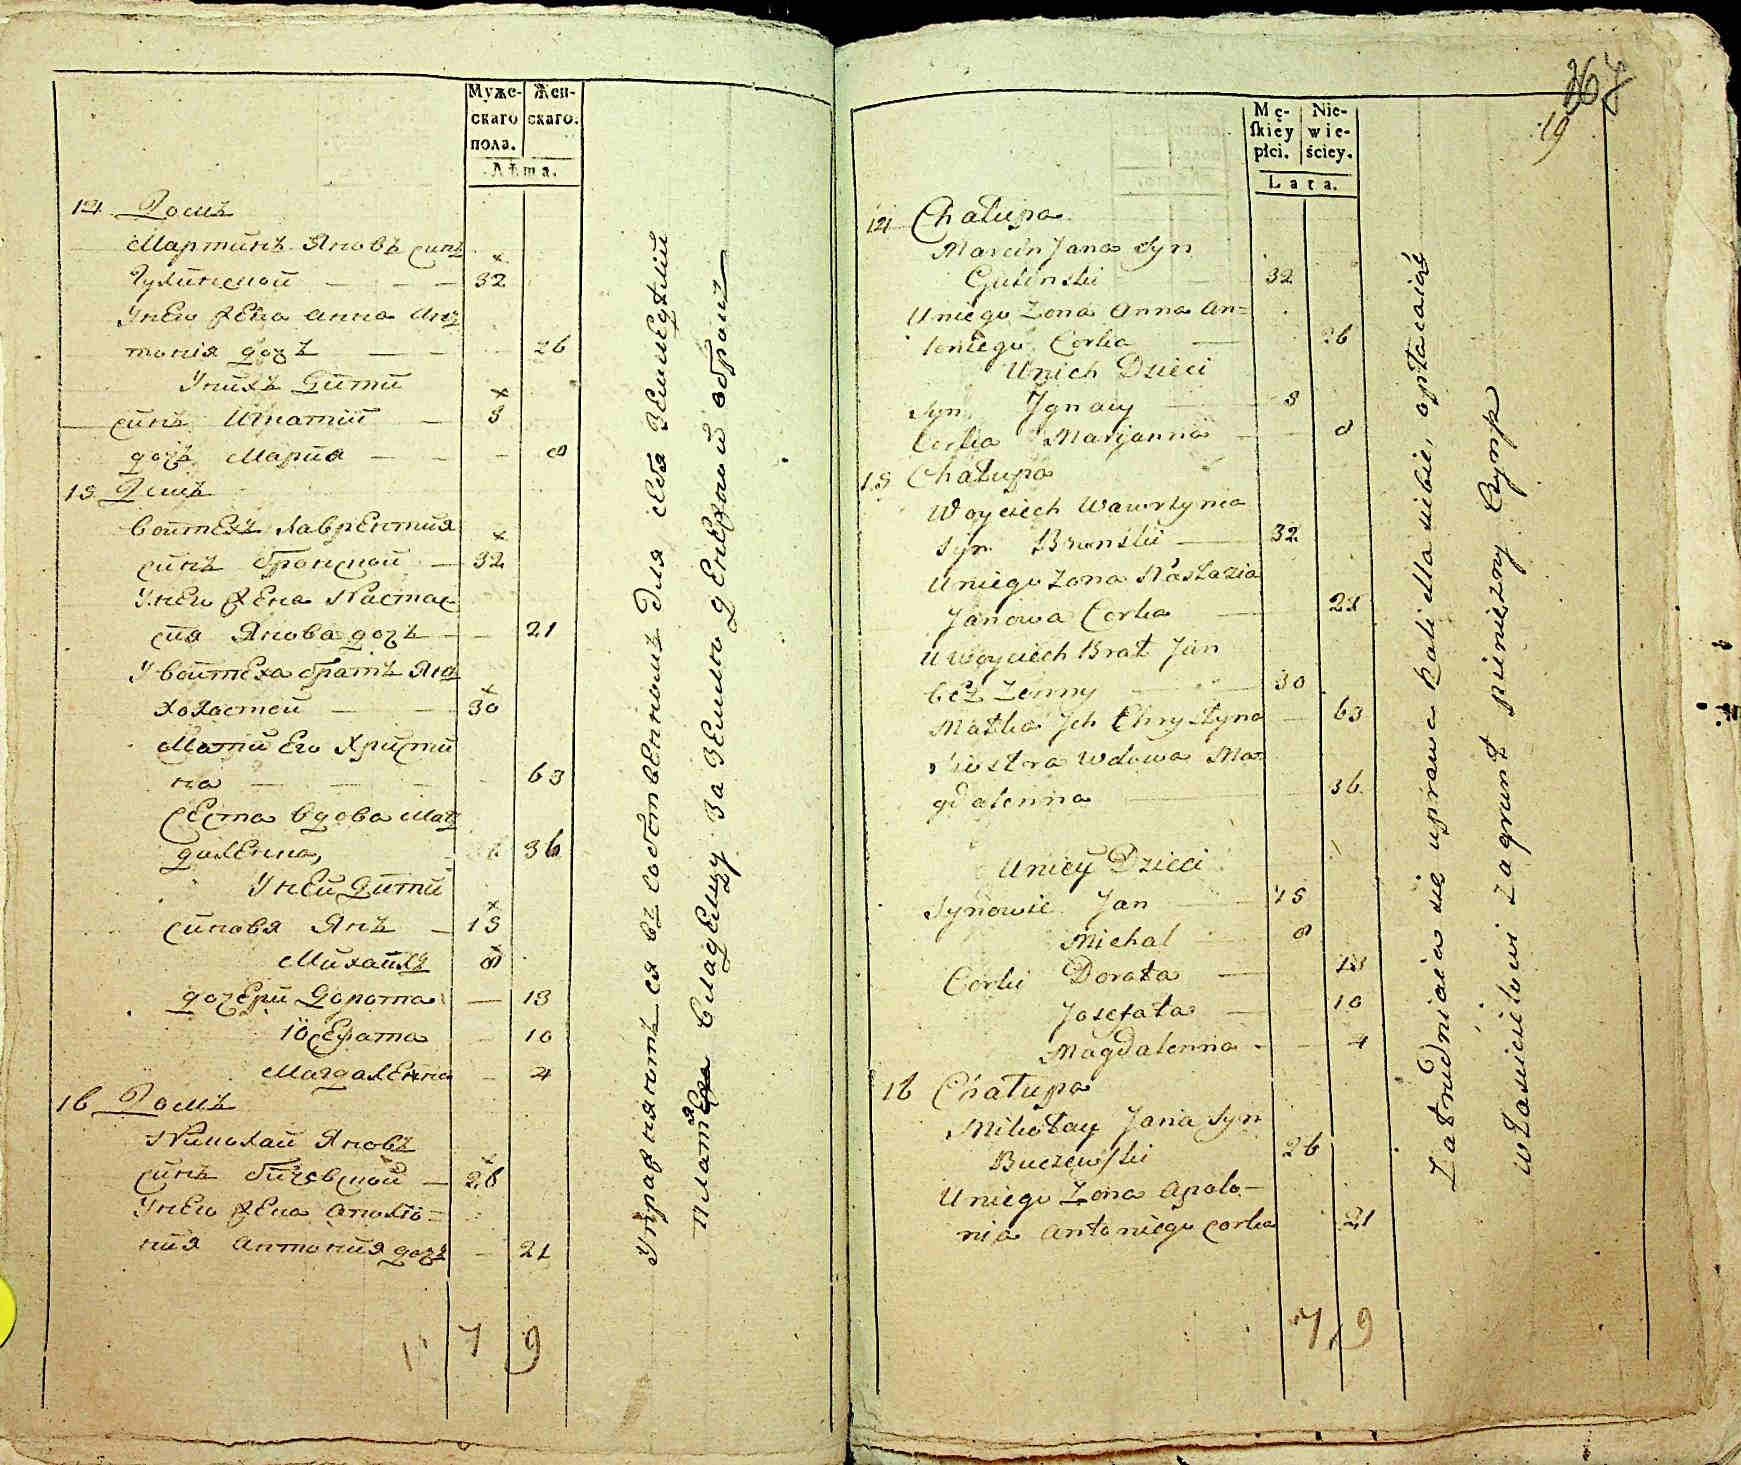 Муже-
скаго
пола.
Жен-
скаго.
Лѣта.
14 Домъ
Мартинъ Яновъ синъ
Гулинской — — — 32
У него жена Анна Ан
тонія дочъ — — 26
У нихъ Дити
синъ Игнатий — 3
дочъ Мария — — 8
15 Домъ
Войтехъ Лаврентия
синъ Бронской — 32
У него жена Настас
ия Янова дочъ — 21
У Войтеха братъ Янъ
холостой — — 30
Мати Его Христи
на — 63
Сестра вдова Маг
далена, 36
У ней Дити
синовя Янъ — 15
Михаилъ 8
дочери Дорота — 13
Іосефата — 10
Магдаленна — 4
16 Домъ
Николай Яновъ
синъ Бучевской — 26
У него жена Аполо-
ния Антония дочъ — 21
7 9
Упражняютъся въ собственномъ для себя земледелии
платя владелцу за землю денежный оброкъ
367
19
Mę-
ſkiey
płci.
Nie-
wie-
ściey.
Lata.
14 Chałupa
Marcin Jana Syn
Gulinski 32
U niego Zona Anna An-
toniego Corka — 26
Unich Dzieci
Syn Jgnacy — 3
Corka Marjanna — 8
15 Chałupa
Woyciech Wawrzynia
Syn Bronski — 32
U niego Zona Nastazia
Janowa Corka — 21
U Woyciech Brat Jan
bez Zenny — 30
Matka Jch Chrystyna — 63
Siostra Wdowa Ma
gdalenna — 36
Uniey Dzieci
Synowie Jan — 15
Michal — 8
Corki Dorata — 13
Josefata — 10
Magdalenna — 4
16 Chałupa
Mikołay Jana Syn
Buczewſki 26
U niego Zona Apolo-
nia Antoniego corka 21
7 9
Zatrudniaia sie uprawa Roli dla siebie, opłacaiąc
właścicielowi za grunt pieniezny Czynsz